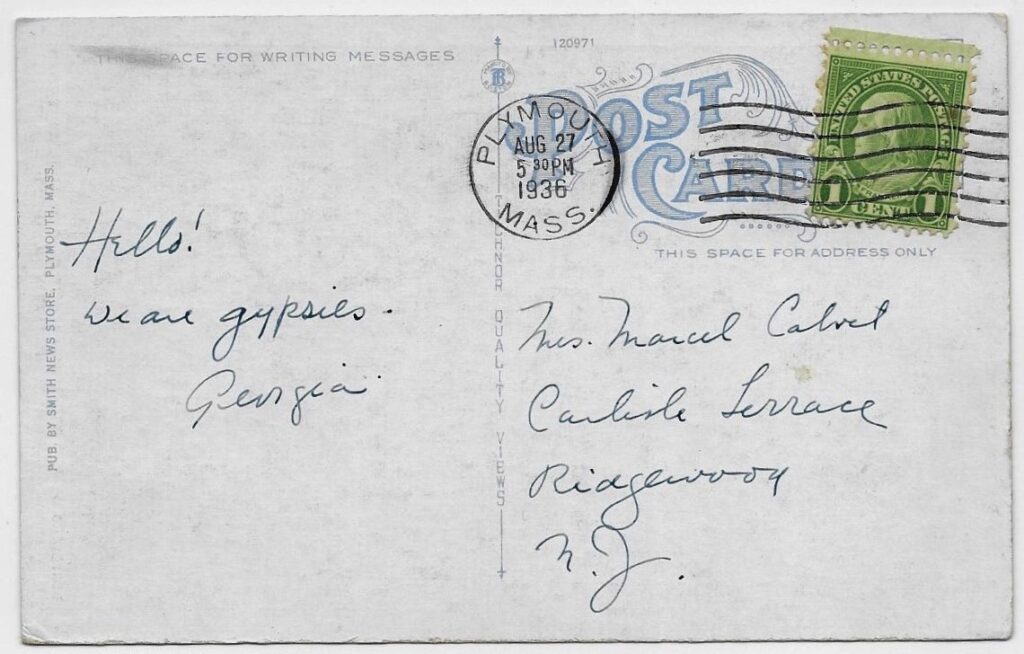 THIS SPACE FOR WRITING MESSAGES
120971
POST
CARD
PLYMOUTH
AUG 27
5 30 PM
1936
MASS.
UNITED STATES POSTAGE
1 CENT 1
THIS SPACE FOR ADDRESS ONLY
PUB. BY SMITH NEWS STORE, PLYMOUTH, MASS.
TICHNOR QUALITY VIEWS
Hello!
We are gypsies.
Georgia
Mrs. Marcel Calvet
Carlisle Terrace
Ridgewood
N.J.